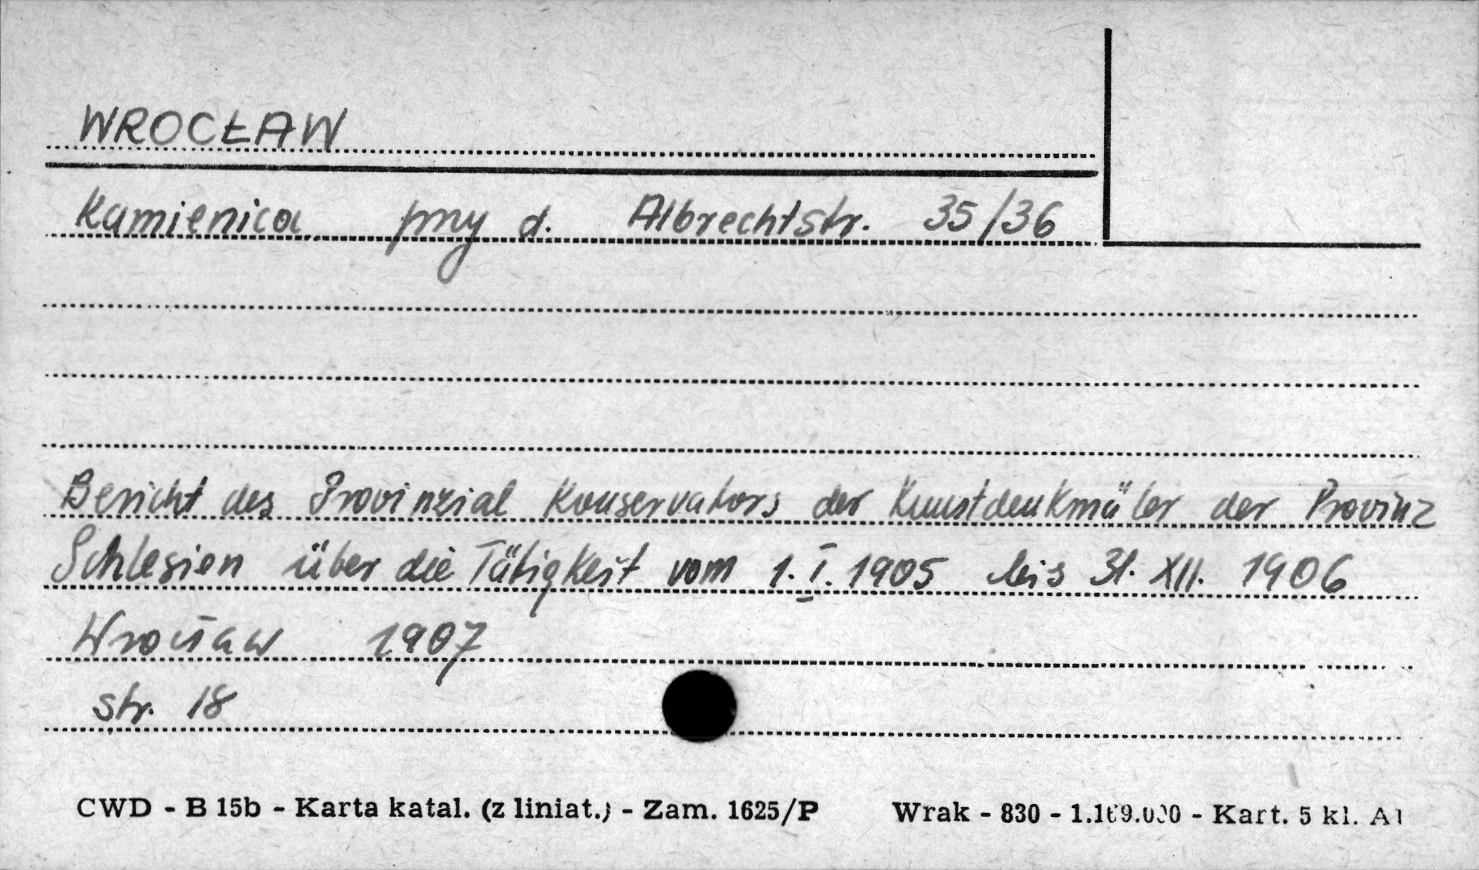 WROCŁAW
Kamienica przy d. Albrechtstr. 35/36
Bericht des Provinzial Konservators der Kunstdenkmäler der Provinz
Schlesien über die Tätigkeit vom 1. I. 1905 bis 31. XII. 1906
Wrocław 1907
str. 18
CWD - B 15b - Karta katal. (z liniat.) - Zam. 1625/P Wrak - 830 - 1.169.000 - Kart. 5 kl. A1